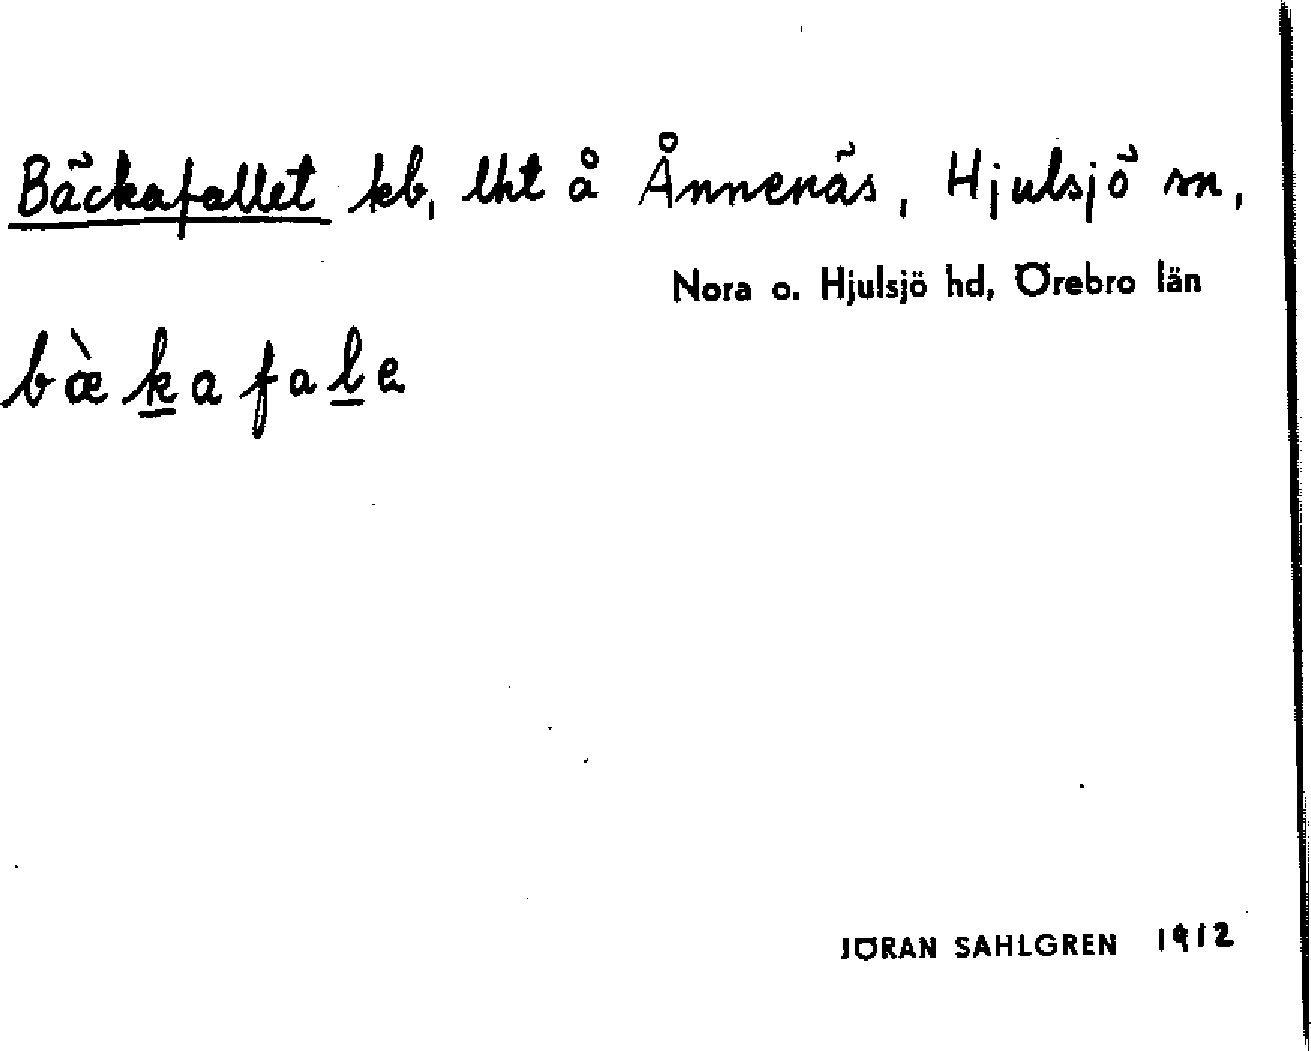 Bäckafallet kb, lht å Ånnenäs, Hjulsjö sn,
Nora o. Hjulsjö hd, Örebro län
bæ̀k̲afal̲e
JÖRAN SAHLGREN 1912